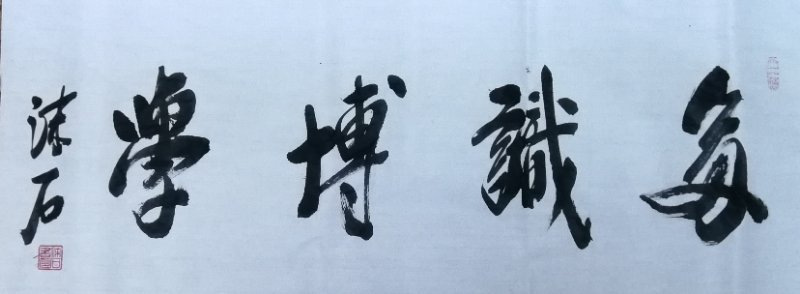 多識博學
沫石